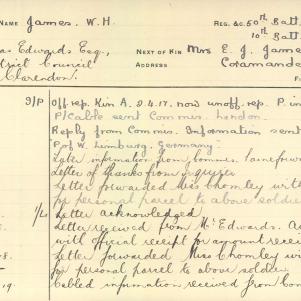 NAME James. W. H. REG. &c. 50th Batt
10th Batt
Edwards Esq., NEXT OF KIN Mrs E. J. Jame
District Council ADDRESS Coromande
Clarendon.
9/P Off. rep. Kin A. 2.4.17. now unoff. rep. P in
P/Cable sent Commrs. London.
Reply from Commrs. Information sent
P. of W. Limburg. Germany
Later information from Commrs.
Letter of thanks from
Letter forwarded Miss Chomley with
for personal parcel to above soldier
Letter acknowledged
Letter received from Mr Edwards.
with official receipt for account
Letter forwarded Miss Chomley with
for personal parcel to above soldier
19. Cabled information received from Com